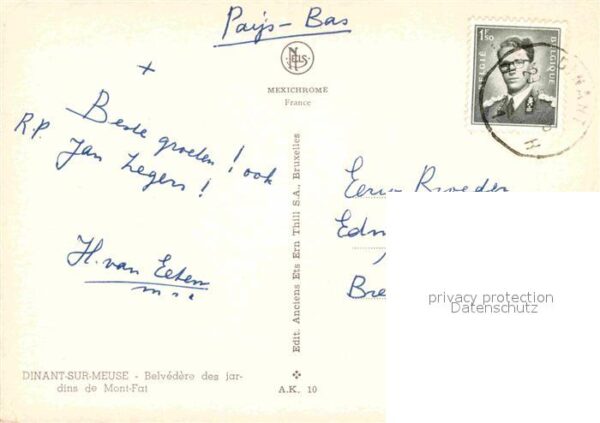 Pays-Bas
NELS
MEXICHROME
France
1F50
BELGIË BELGIQUE
DINANT
+
Beste groeten! ook
R.P. Jan Zegers!
H. van Eeten
Eerw Broeder
Edm
Bre
privacy protection
Datenschutz
Edit. Anciens Ets Ern Thill S.A., Bruxelles
DINANT-SUR-MEUSE - Belvédère des jar-
dins de Mont-Fat
A.K. 10